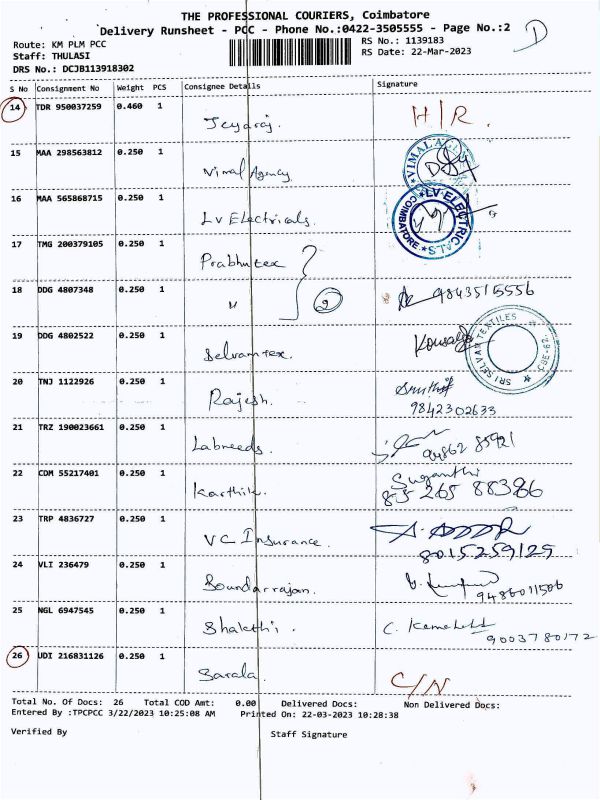 THE PROFESSIONAL COURIERS, Coimbatore
Delivery Runsheet - PCC - Phone No.:0422-3505555 - Page No.:2
D
Route: KM PLM PCC
RS No.: 1139183
Staff: THULASI
RS Date: 22-Mar-2023
DRS No.: DCJB113918302
S No Consignment No Weight PCS Consignee Details Signature
14 TDR 950037259 0.460 1 Jeyaraj. H/R.
15 MAA 298563812 0.250 1 Vimal Agency
16 MAA 565868715 0.250 1 LV Electricals. LV ELECTRICALS COIMBATORE
17 TMG 200379105 0.250 1 Prabhutex
18 DDG 4807348 0.250 1 " 2 9843515556
19 DDG 4802522 0.250 1 Selvamtex. SRI SELVAM TEXTILES CBE-62.
20 TNJ 1122926 0.250 1 Rajesh. 9842302633
21 TRZ 190023661 0.250 1 Labneeds. 94862 85921
22 CDM 55217401 0.250 1 Karthik. Suganthi
85 265 88386
23 TRP 4836727 0.250 1 VC Insurance.
8015259129
24 VLI 236479 0.250 1 Soundarrajan. 9486011506
25 NGL 6947545 0.250 1 Shakthi. C.
9003780172
26 UDI 216831126 0.250 1 Sarala. C/N
Total No. Of Docs: 26 Total COD Amt: 0.00 Delivered Docs: Non Delivered Docs:
Entered By :TPCPCC 3/22/2023 10:25:08 AM Printed On: 22-03-2023 10:28:38
Verified By Staff Signature